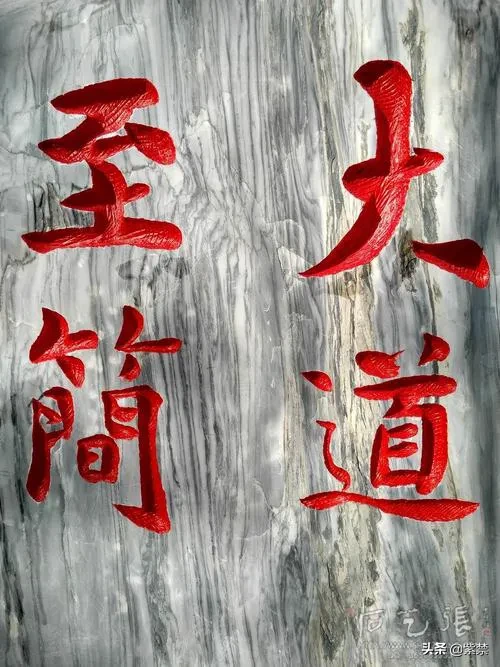 大道
至簡
头条 @紫禁